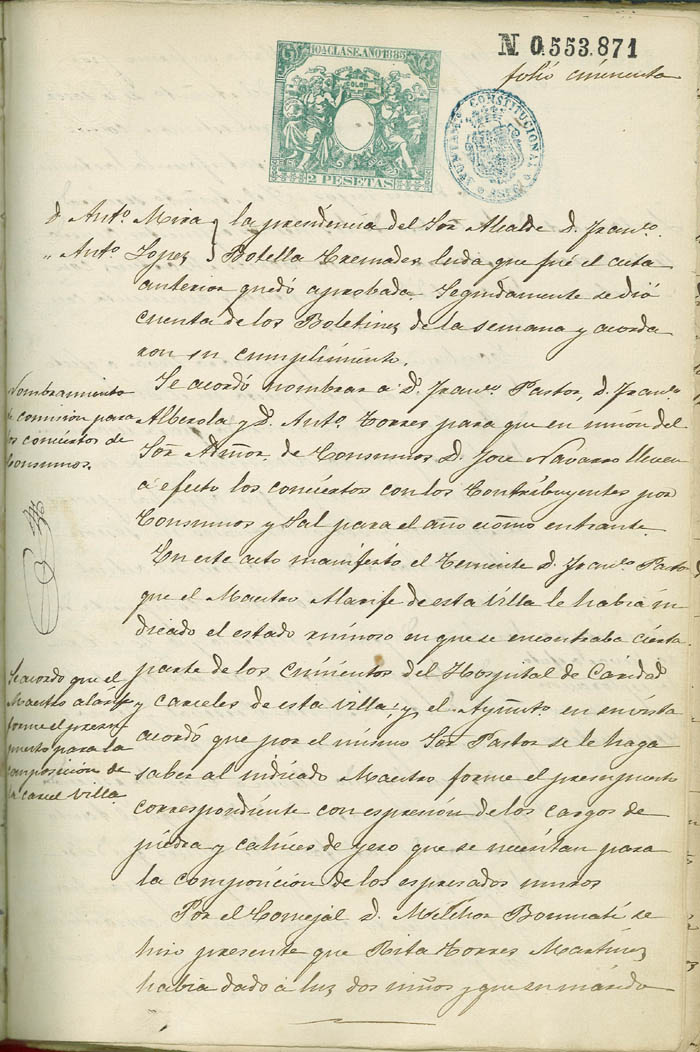 10ª CLASE. AÑO 1885
COLON
2 PESETAS
N. 0.553.871
folio cincuenta
AYUNTAMTO CONSTITUCIONAL
d. Antº Mira y la presidencia del Sor Alcalde d. Franco.
" Antº Lopez } Botella Cremades, leida que fué el acta
anterior quedó aprobada. Segundamente se dió
cuenta de los Boletines de la semana y acorda
ron su cumplimiento.
Nombramiento
de comision para
los conciertos de
Consumos.
Se acordó nombrar a D. Franco. Pastor, d. Franco
Alberola y D. Antº. Torres para que en union del
Sor Admor. de Consumos D. Jose Navarro lleven
á efecto los conciertos con los Contribuyentes por
Consumos y Sal para el año ecómo entrante.
En este acto manifestó el Teniente d. Franco Pastor
que el Maestro Alarife de esta villa le habia in
dicado el estado ruinoso en que se encontraba cierta
Se acordo que el
Maestro alarife
forme el presu-
puesto para la
composicion de
la carcel villa.
parte de los cimientos del Hospital de Caridad
y carceles de esta villa; y el Ayuntº. en su vista
acordó que por el mismo Sor Pastor se le haga
saber al indicado Maestro forme el presupuesto
correspondiente con espresión de los cargos de
piedra y cahices de yeso que se necesitan para
la composición de los espresados muros
Por el Concejal d. Melchor Bonmatí se
hizo presente que Rita Torres Martinez
habia dado á luz dos niños y que su marido